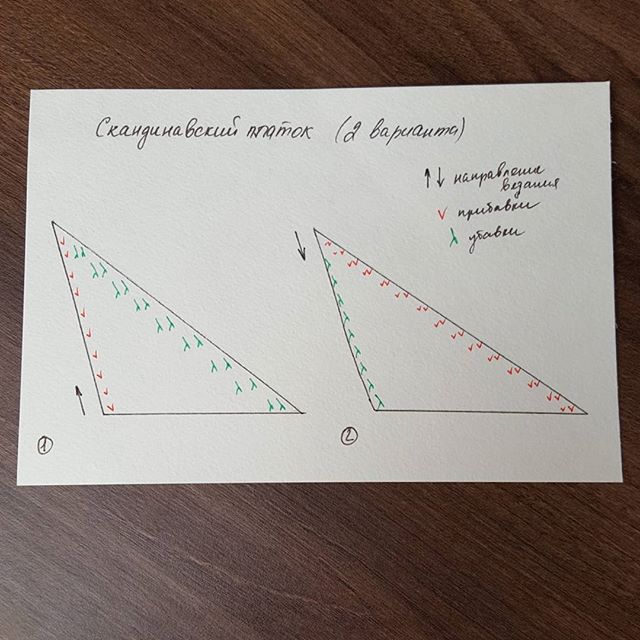 Скандинавский платок (2 варианта)
↑↓ направление
вязания
✓ прибавки
λ убавки
①
②